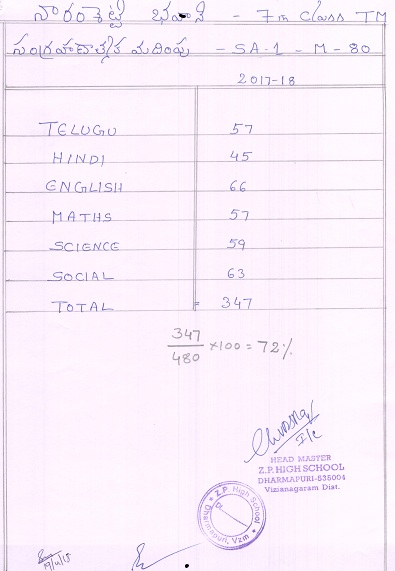 నారంశెట్టి భవాని - 7th Class TM
సంగ్రహణాత్మక మదింపు - SA-1 - M - 80
2017-18
TELUGU 57
HINDI 45
ENGLISH 66
MATHS 57
SCIENCE 59
SOCIAL 63
TOTAL = 347
347
480 ×100 = 72%
I/c
HEAD MASTER
Z.P. HIGH SCHOOL
DHARMAPURI-535004
Vizianagaram Dist.
Z.P. High School
Dharmapuri, Vzm